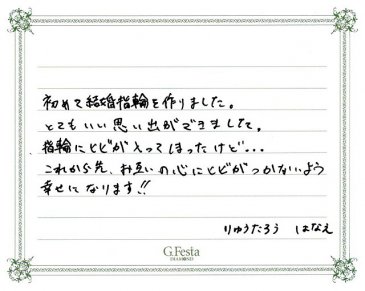 初めて結婚指輪を作りました。
とてもいい思い出ができまして。
指輪にヒビが入ってしまったけど...
これから先、お互いの心にヒビがつかないよう
幸せになります!!
りゅうたろう はなえ
G.Festa
DIAMOND